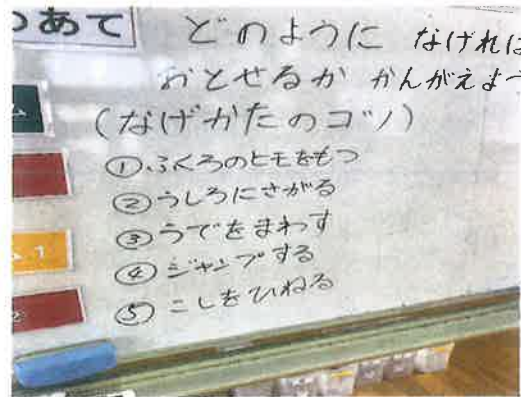 めあて
どのように なげれば
おとせるか かんがえよう
(なげかたのコツ)
①ふくろのヒモをもつ
②うしろにさがる
③うでをまわす
④ジャンプする
⑤こしをひねる
ム
ム1
2